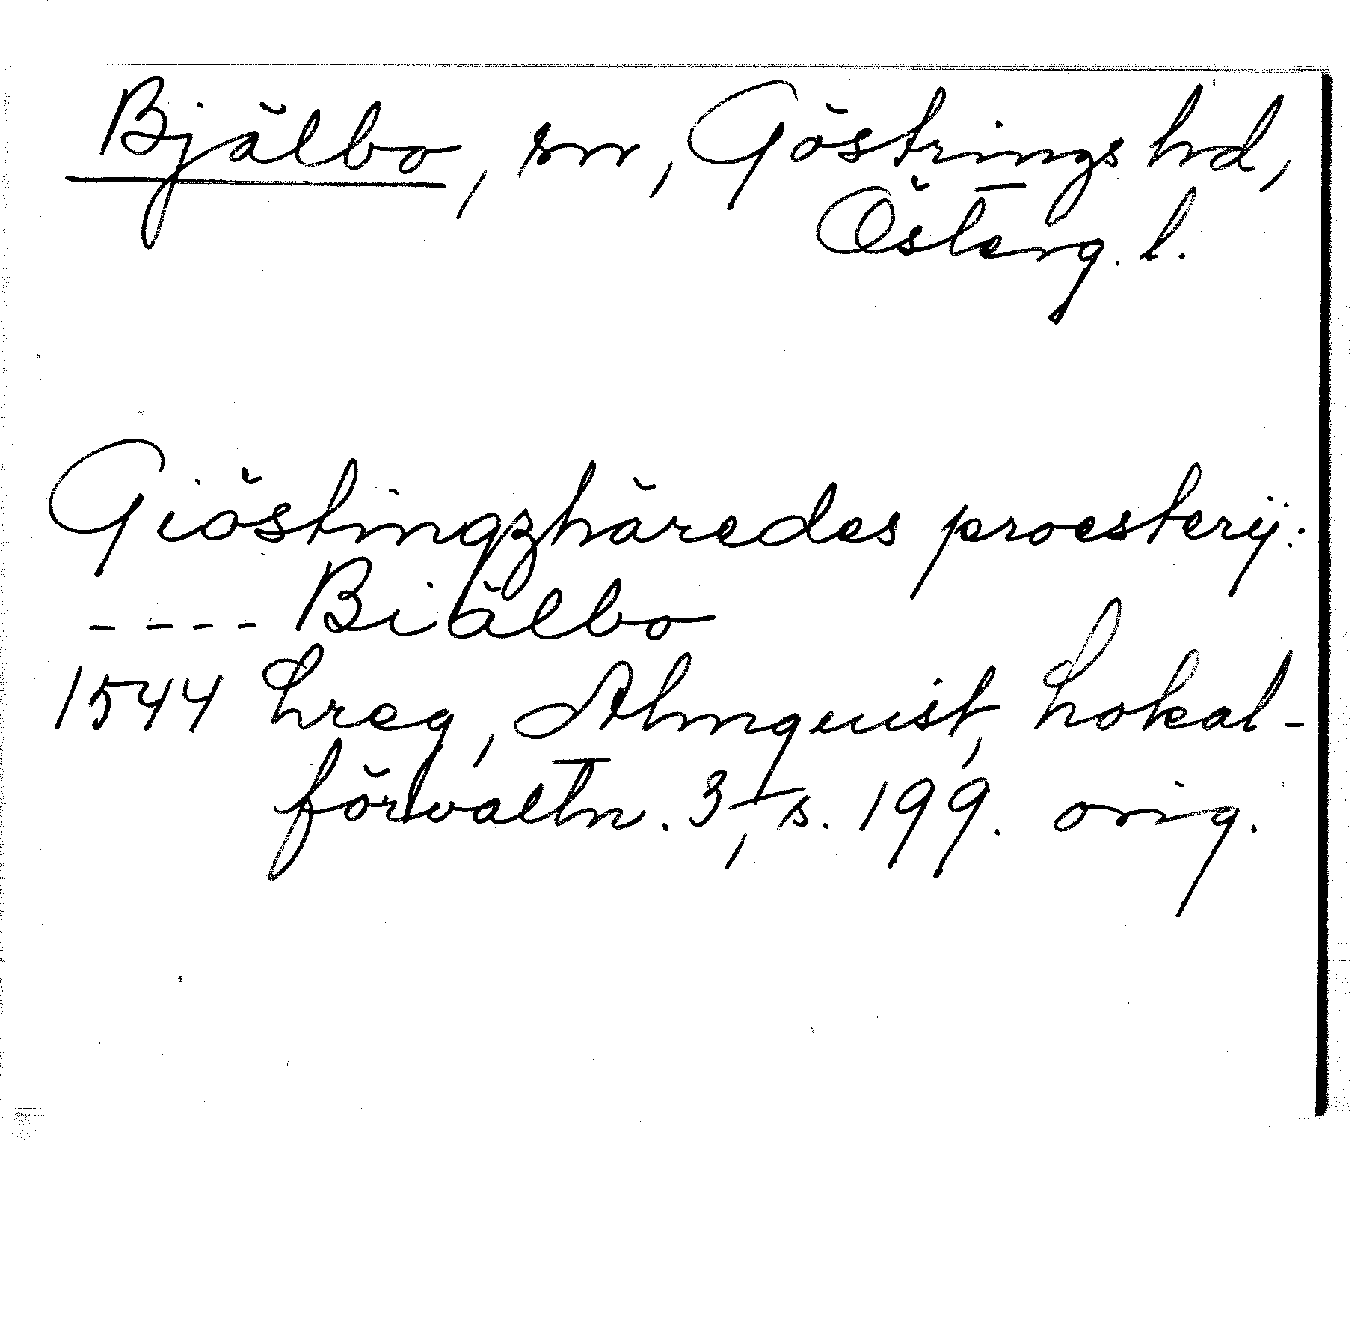 Bjälbo, sn, Göstrings hd,
Österg. l.
Giöstingzhäredes proesterij:
---- Biälbo
1544 Lreg, Almquist, Lokal-
förvaltn. 3, s. 199. orig.